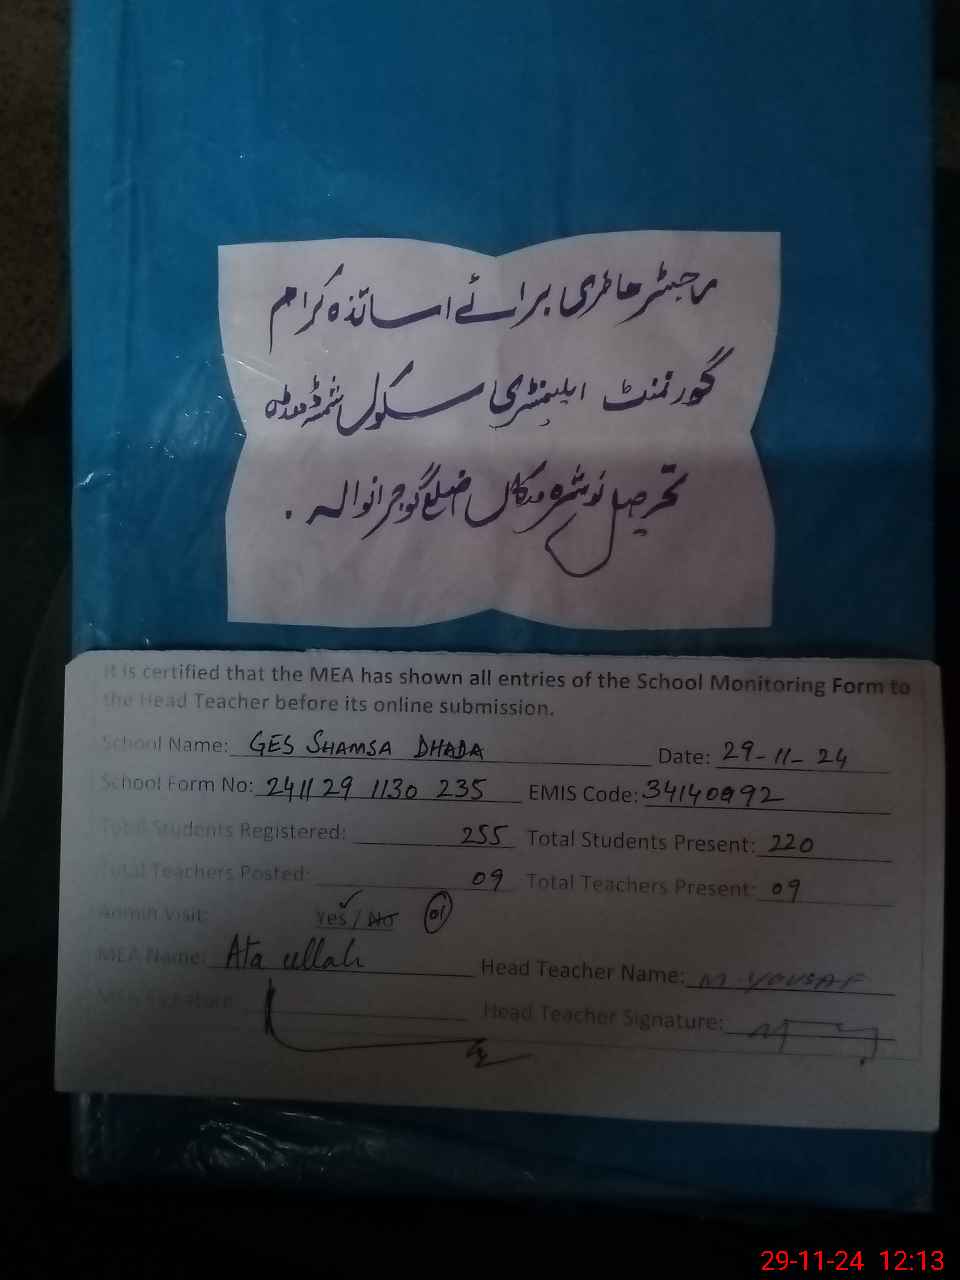 رجسٹر حاضری برائے اساتذہ کرام
گورنمنٹ ایلیمنٹری سکول شمسہ ڈھڈہ
تحصیل نوشہرہ ورکاں ضلع گوجرانوالہ ۔
It is certified that the MEA has shown all entries of the School Monitoring Form to
the Head Teacher before its online submission.
School Name: GES SHAMSA DHADA Date: 29-11-24
School Form No: 241129 1130 235 EMIS Code: 34140992
Total Students Registered: 255 Total Students Present: 220
Total Teachers Posted: 09 Total Teachers Present: 09
Admin Visit: Yes / No 01
MEA Name: Ata ullah Head Teacher Name: M YOUSAF
MEA Signature: Head Teacher Signature:
29-11-24 12:13